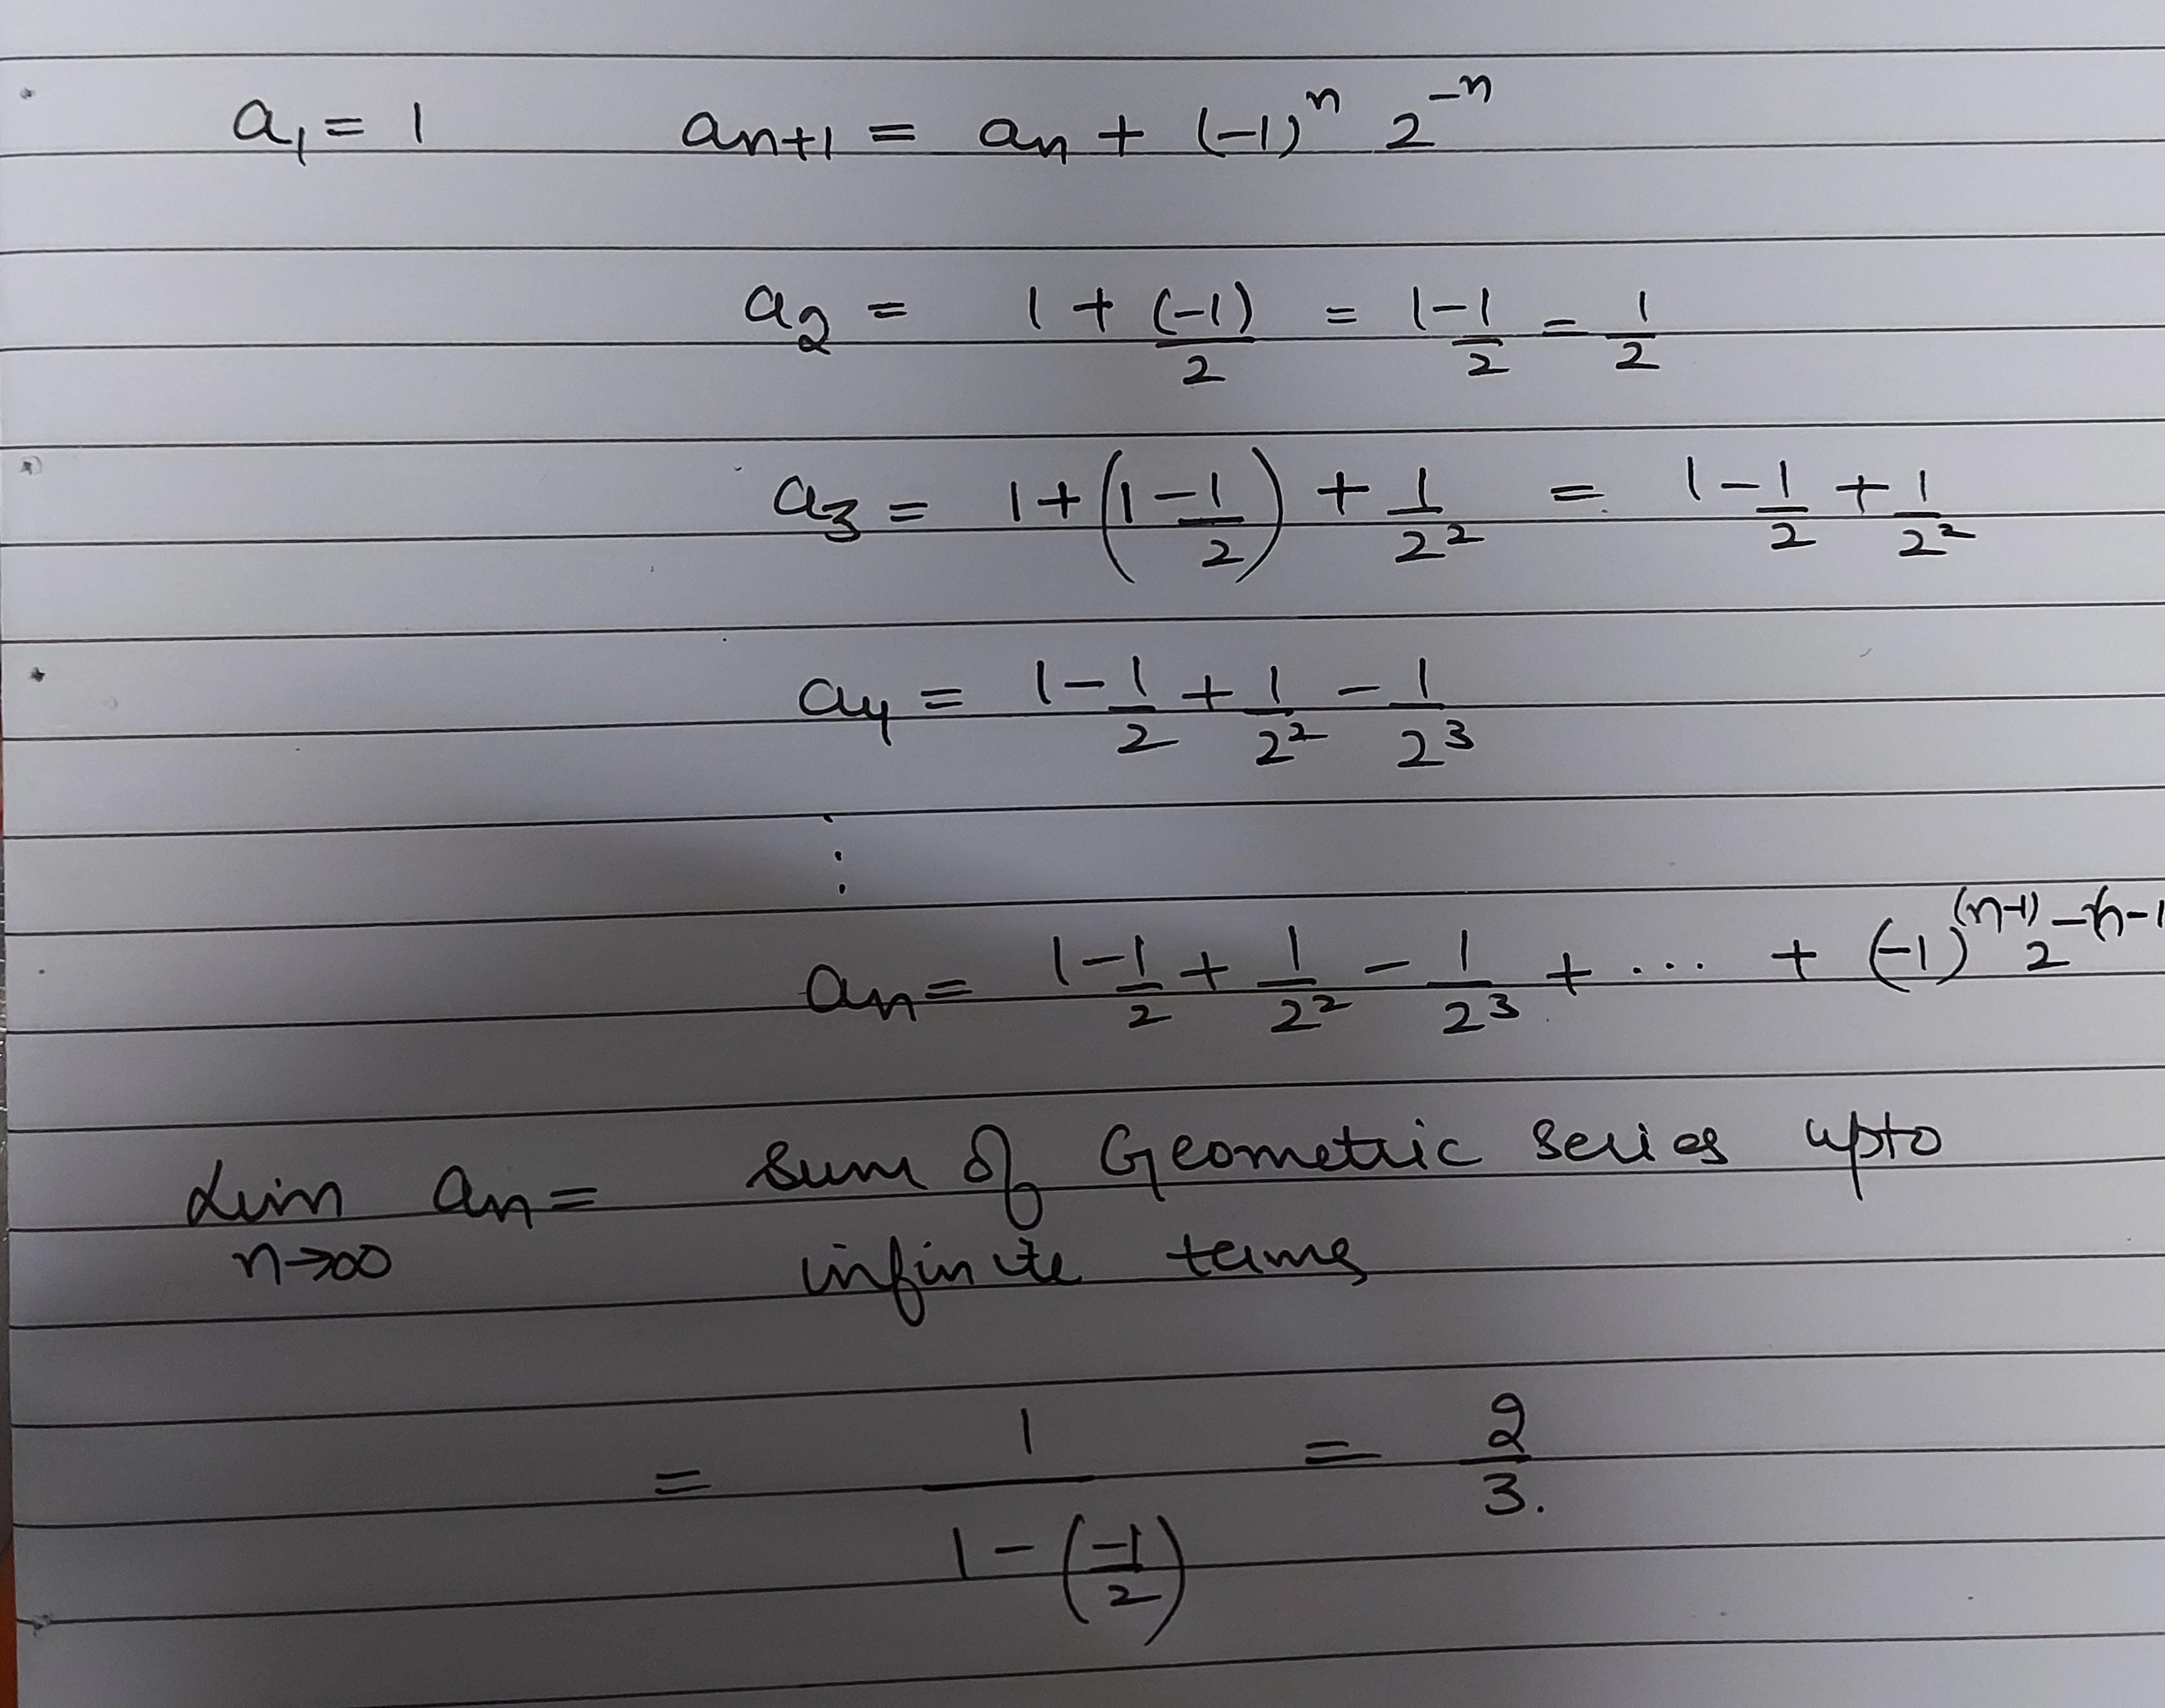 a₁ = 1 aₙ₊₁ = aₙ + (-1)ⁿ 2⁻ⁿ
a₂ = 1 + (-1)/2 = 1 - 1/2 = 1/2
a₃ = 1 + (1 - 1/2) + 1/2² = 1 - 1/2 + 1/2²
a₄ = 1 - 1/2 + 1/2² - 1/2³
⋮
aₙ = 1 - 1/2 + 1/2² - 1/2³ + ... + (-1)⁽ⁿ⁻¹⁾ 2⁻⁽ⁿ⁻¹
Lim aₙ = Sum of Geometric Series upto
n→∞ infinite terms
= 1/(1 - (-1/2)) = 2/3.